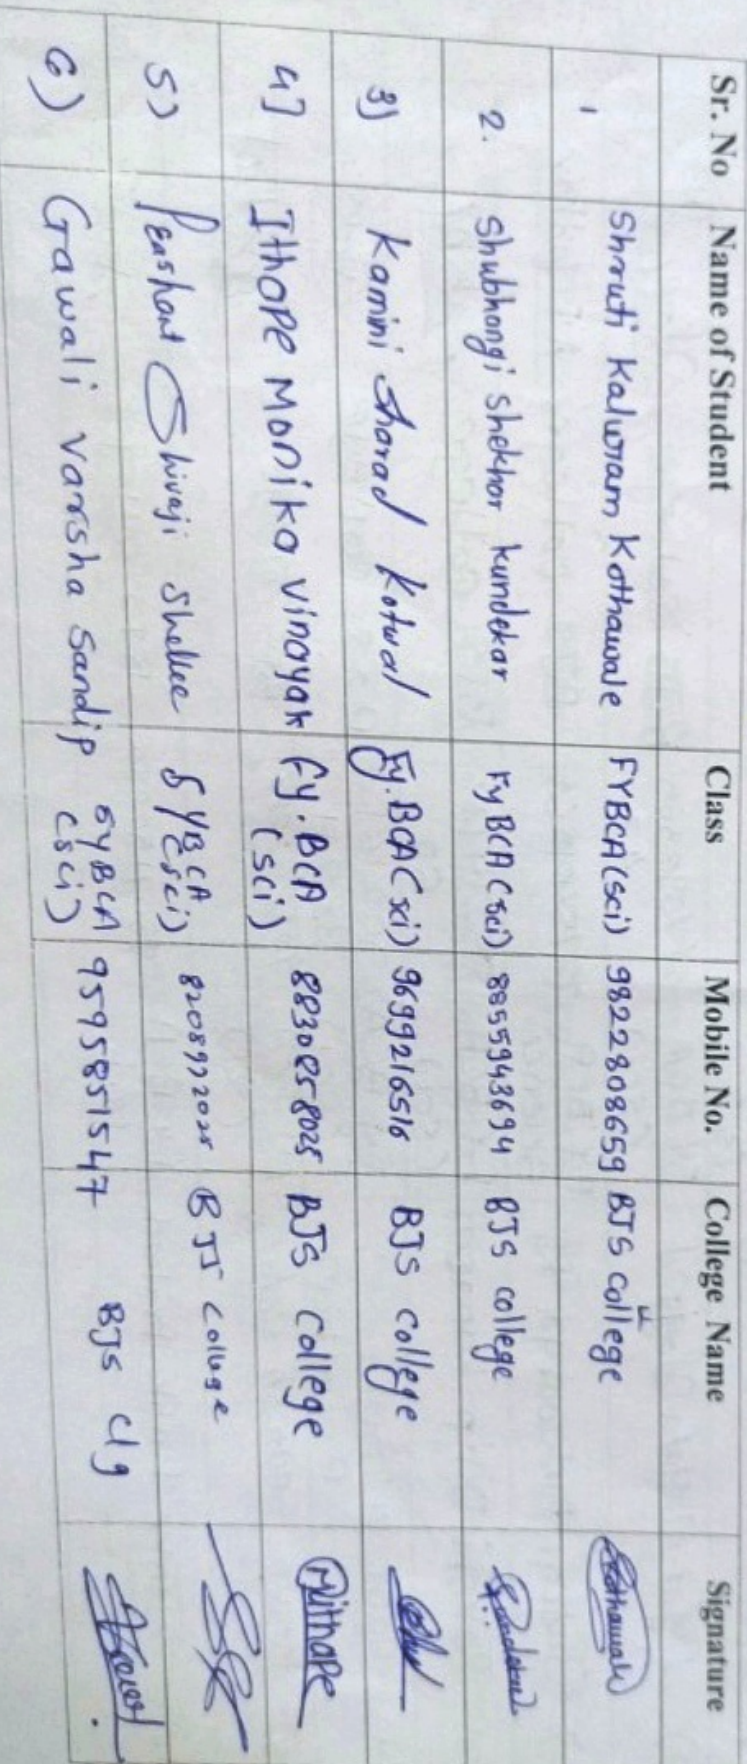 Sr. No Name of Student Class Mobile No. College Name Signature
1 Shruti Kaluram Kothawale FYBCA(sci) 9822808659 BJS college Kothawale
2. Shubhangi Shekhar kundekar Fy BCA(sci) 8855943694 BJS college
3) Kamini Sharad Kotwal Fy.BCA(sci) 9699216516 BJS college
4] Ithape Monika vinayak Fy.BCA BJS College Mithape
(sci)
5) Shivaji SYBCA BJS College
(sci)
6) Gawali Varsha Sandip SYBCA 9595851547 BJS clg
(sci)